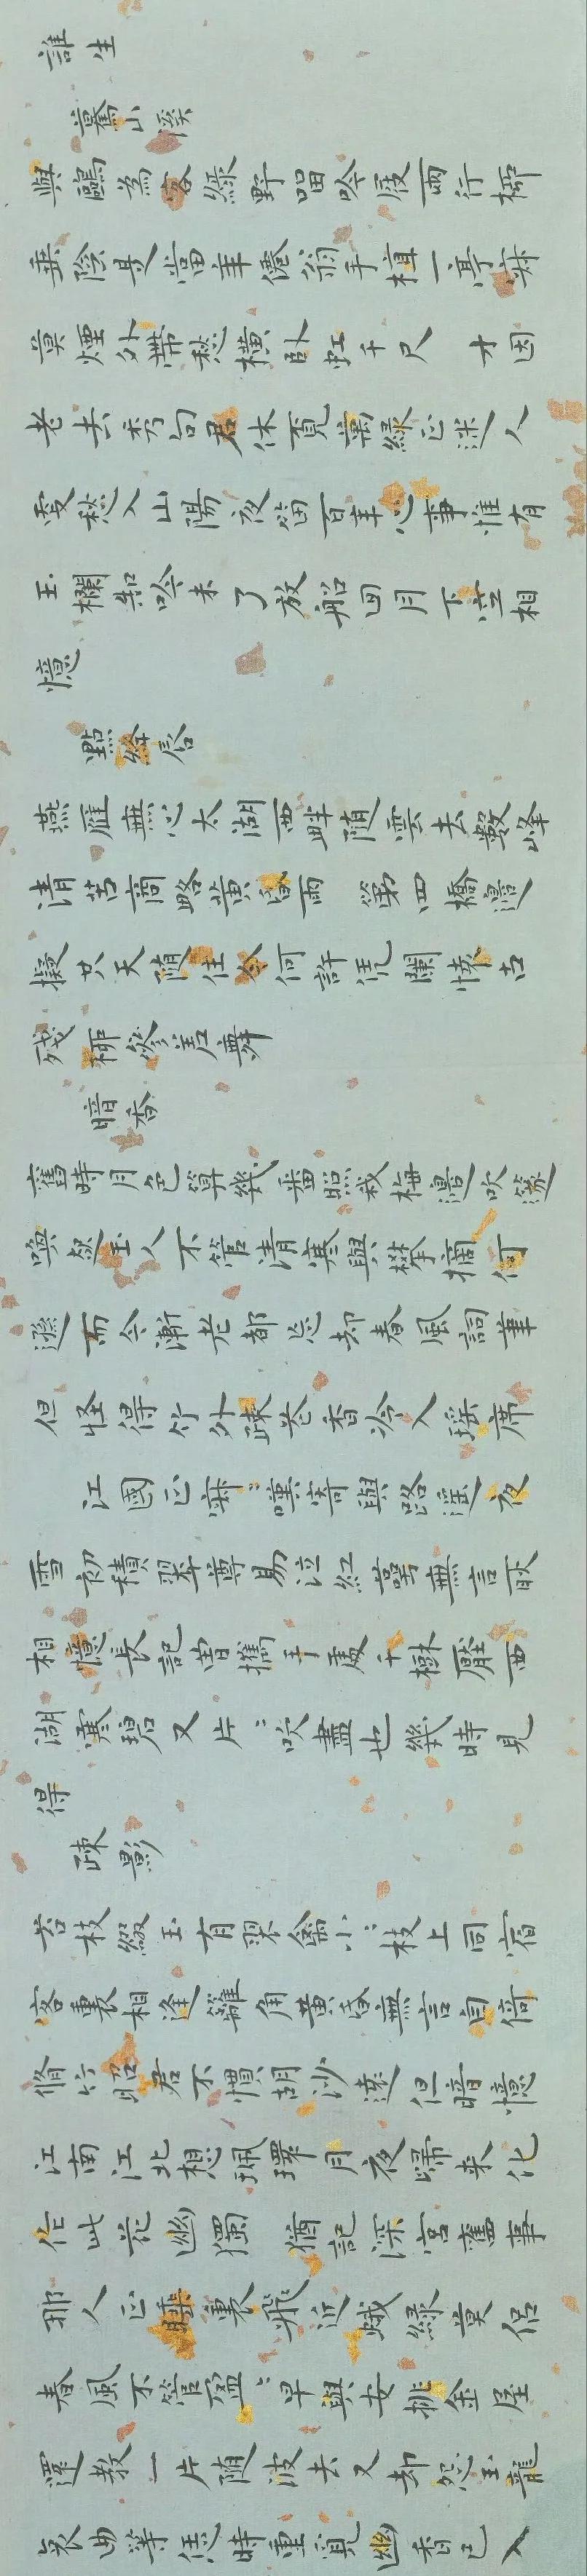 誰生
驀山溪
與鷗為客綠野留吟屐兩行柳
垂陰是當年僊翁手植一亭寂
寞煙外帶愁橫臥虹千尺　才因
老共秀句君休覓萬綠正迷人
更愁入山陽夜笛百年心事惟有
玉欄知吟未了放船回月下空相
憶
點絳唇
燕雁無心太湖西畔随雲去數峰
清苦商略黃昏雨　第四橋邊
擬共天随住今何許凭闌懷古
殘柳參差舞
暗香
舊時月色算幾番照我梅邊吹篴
喚起玉人不管清寒與攀摘何
遜而今漸老都忘却春風詞筆
但怪得竹外疎花香冷入瑤席
江國正寂〻嘆寄與路遙夜
雪初積翠尊易泣紅萼無言耿
相憶長記曾攜手處千樹壓西
湖寒碧又片〻吹盡也幾時見
得
疎影
苔枝綴玉有翠禽小〻枝上同宿
客裏相逢籬角黃昏無言自倚
脩竹昭君不慣胡沙遠但暗憶
江南江北想珮環月夜歸來化
作此花幽獨　猶記深宮舊事
那人正睡裏飛近蛾綠莫侣
春風不管盈〻早與安排金屋
還教一片随波去又却怨玉龍
哀曲等恁時重覓幽香已入